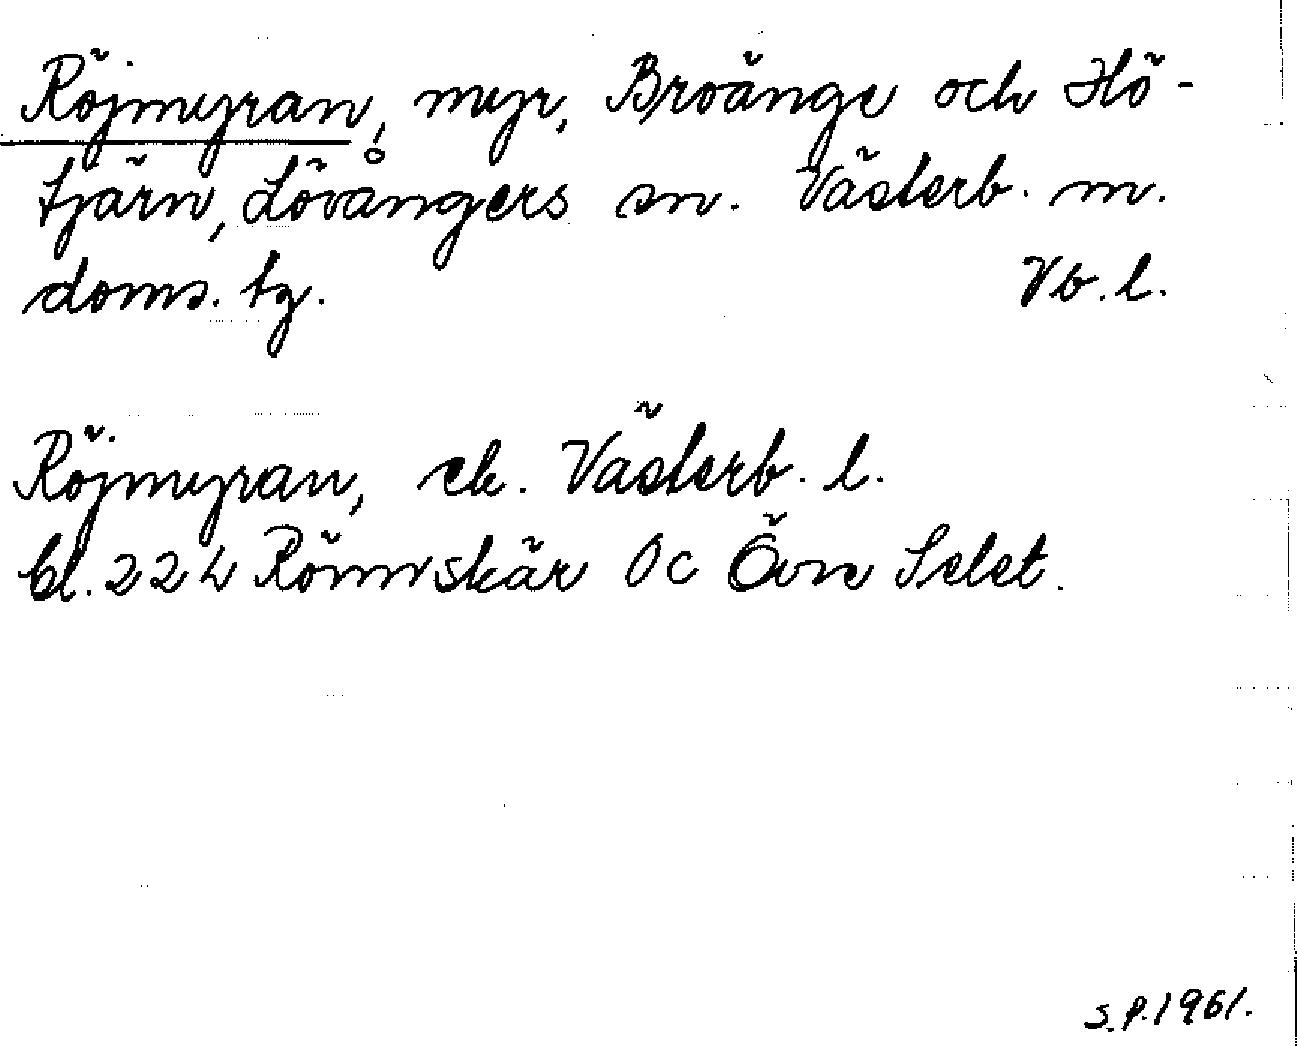 Röjmyran, myr, Broänge och Hö-
tjärn, Lövångers sn. Västerb. m.
doms. tg. Vb. l.
Röjmyran, ek. Västerb. l.
bl. 22 h Rönnskär Oc Övre Selet.
S.P. 1961.